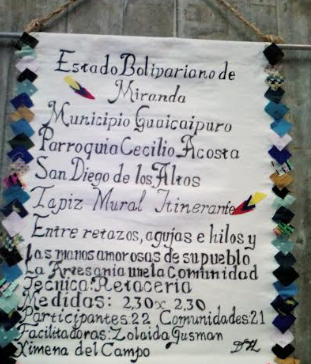 Estado Bolivariano de
Miranda
Municipio Guaicaipuro
Parroquia Cecilio Acosta
San Diego de los Altos
Tapiz Mural Itinerante
Entre retazos, agujas e hilos y
las manos amorosas de su pueblo
La Artesania une la Comunidad
Tecnica: Retaceria
Medidas: 2,30 x 2,30
Participantes: 22 Comunidades: 21
Facilitadoras: Zolaida Gusman
Ximena del Campo